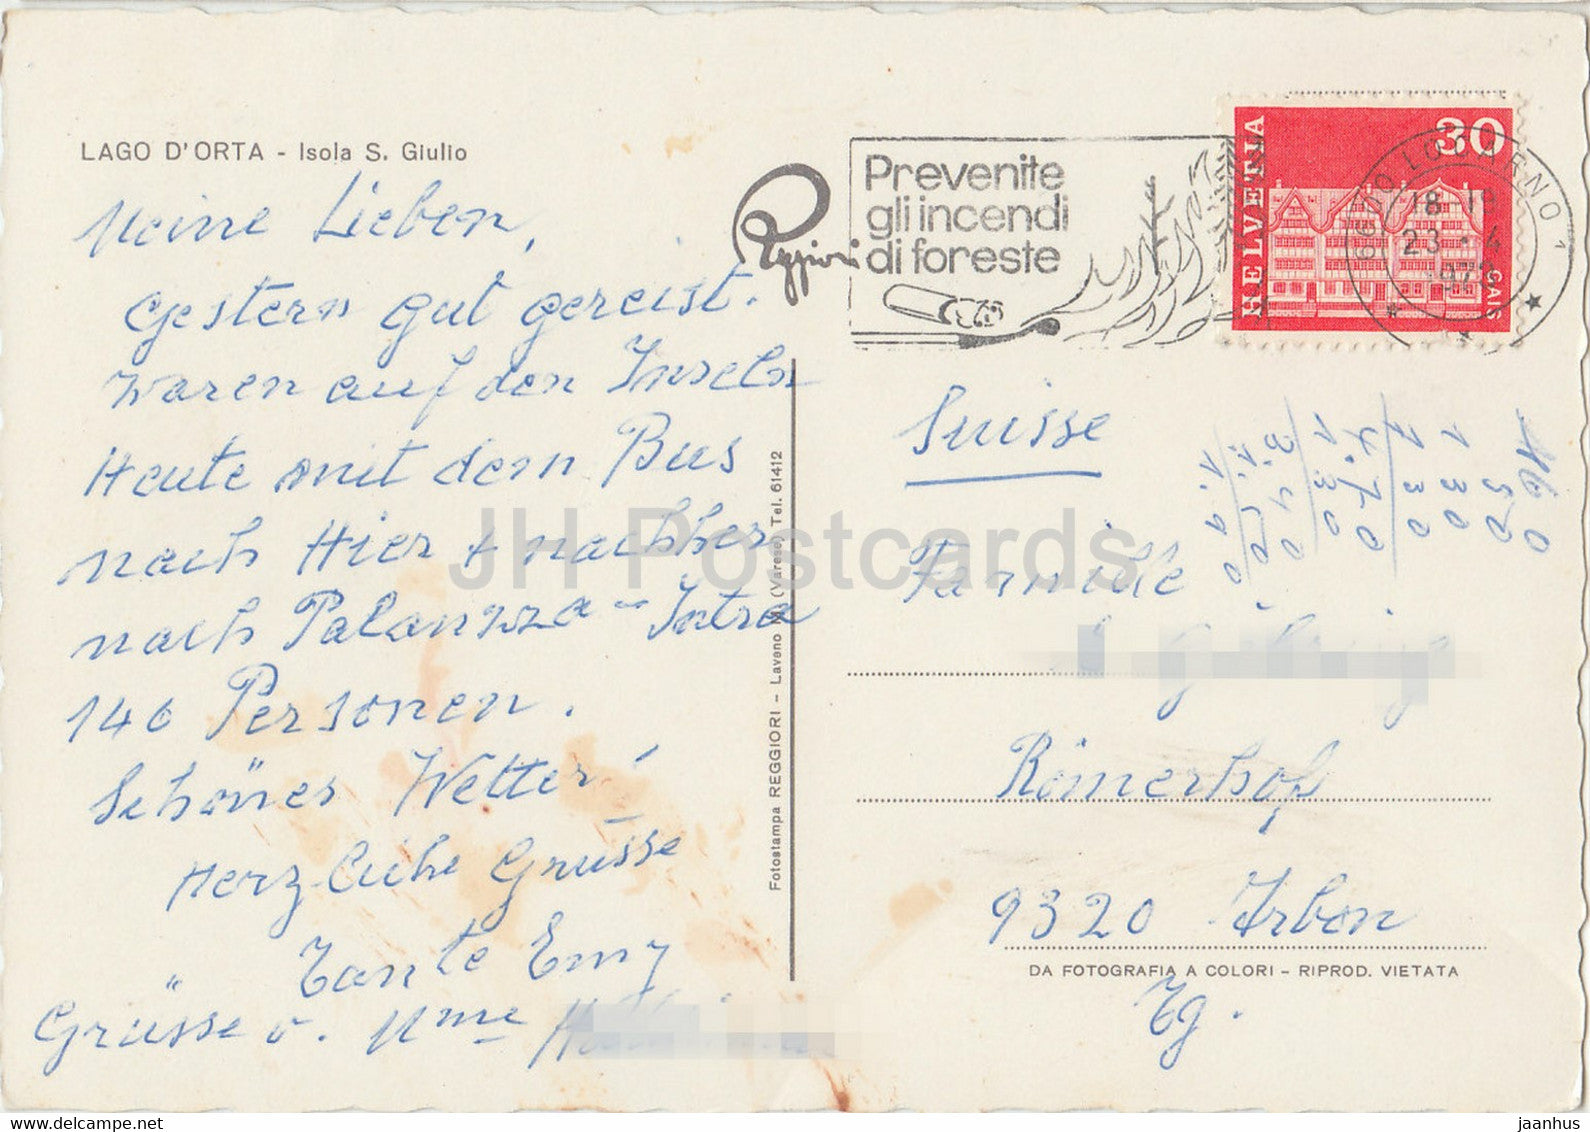 LAGO D'ORTA - Isola S. Giulio
Meine Lieben,
Gestern gut gereist.
waren auf den Inseln
Heute mit dem Bus
nach Hier + nachher
nach Palanzza - Intra
140 Personen.
Schönes Wetter!
Herzliche Grüsse
Tante Emy
Grüsse v. Mme
Fotostampa REGGIORI - Laveno M. (Varese) Tel. 61412
Reggiori
Prevenite
gli incendi
di foreste
HELVETIA
30
GAIS
6600 LOCARNO 1
18-19
23.-4
1973
Suisse
Famille
Römerhof
9320 Arbon
Tg.
DA FOTOGRAFIA A COLORI - RIPROD. VIETATA
50
130
130
4.70
1.30
3.40
JH Postcards
delcampe.net
jaanhus